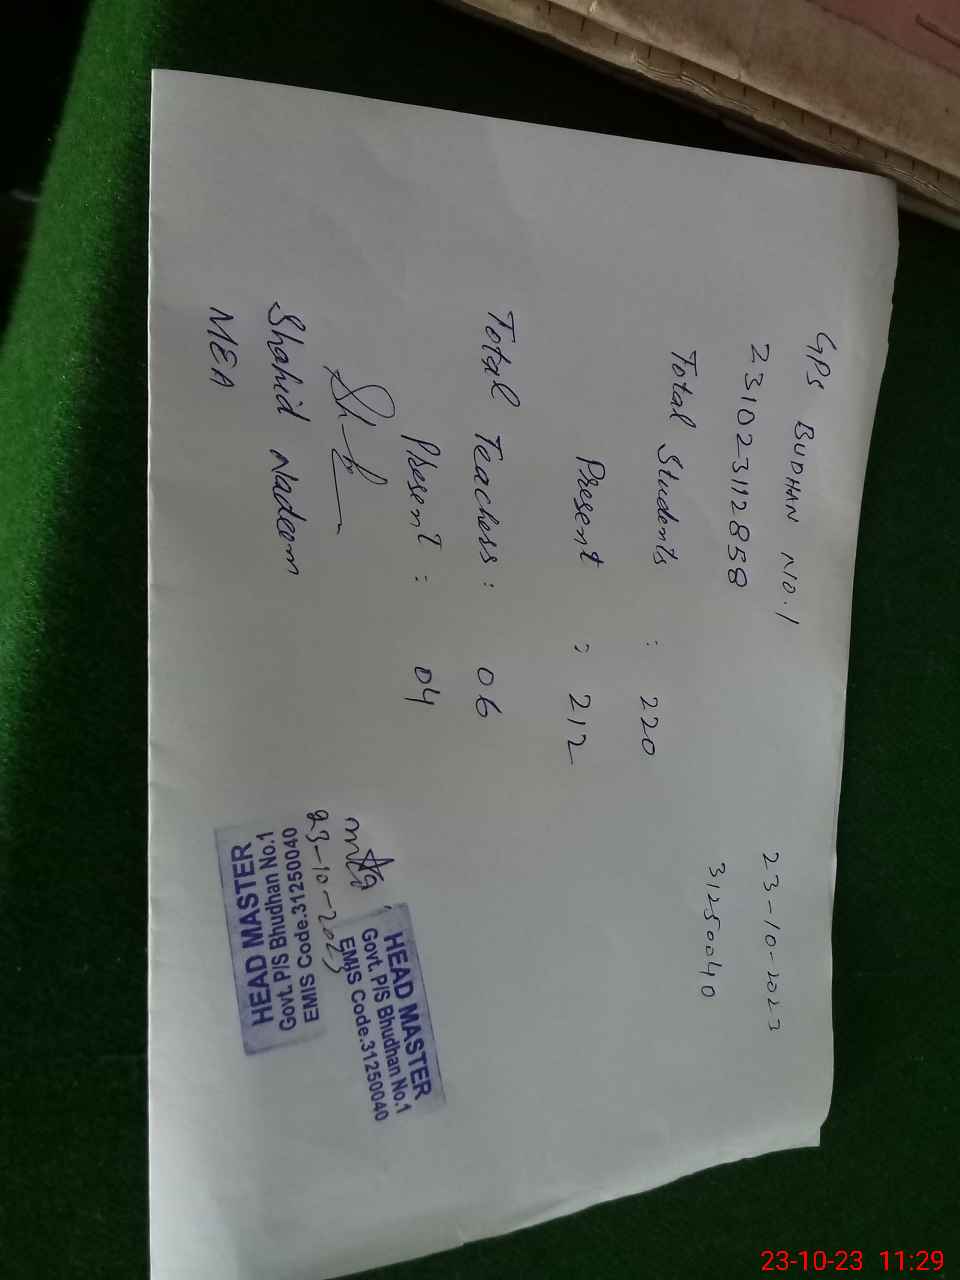 GPS BUDHAN NO.1
23-10-2023
231023112858
31250040
Total Students : 220
Present : 212
Total Teachers : 06
Present : 04
Shahid Nadeem
MEA
23-10-2023
HEAD MASTER
Govt. P/S Bhudhan No.1
EMIS Code.31250040
HEAD MASTER
Govt. P/S Bhudhan No.1
EMIS Code.31250040
23-10-23 11:29